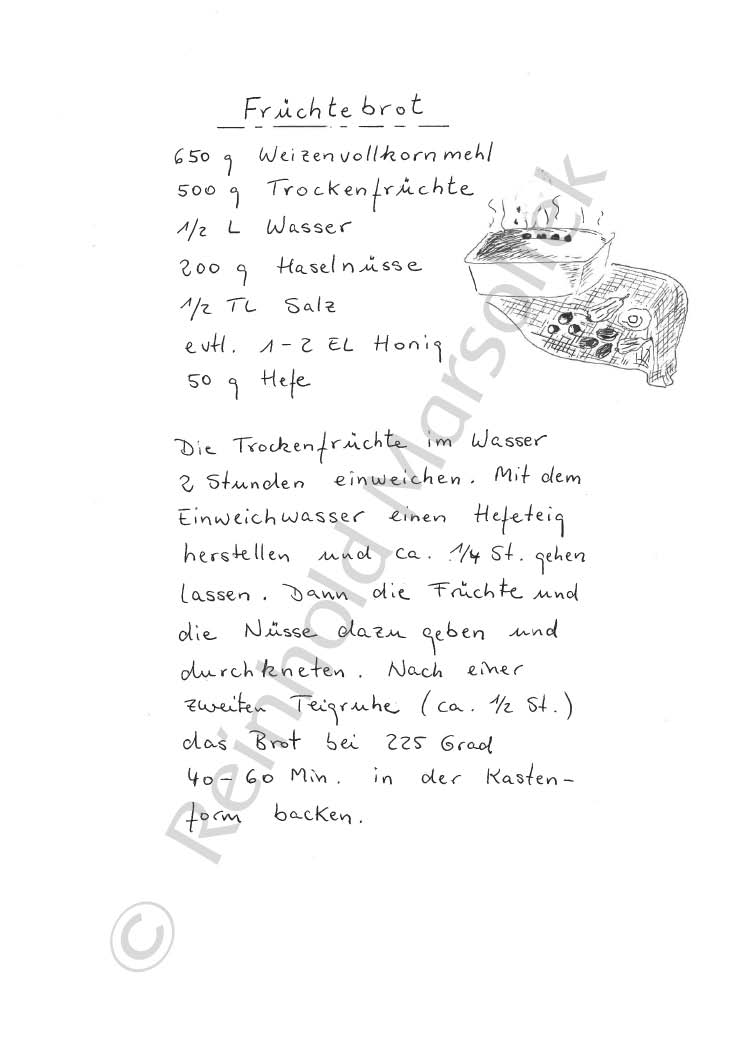 Früchtebrot
650 g Weizenvollkornmehl
500 g Trockenfrüchte
1/2 L Wasser
200 g Haselnüsse
1/2 TL Salz
evtl. 1-2 EL Honig
50 g Hefe
Die Trockenfrüchte im Wasser
2 Stunden einweichen. Mit dem
Einweichwasser einen Hefeteig
herstellen und ca. 1/4 St. gehen
lassen. Dann die Früchte und
die Nüsse dazu geben und
durchkneten. Nach einer
zweiten Teigruhe (ca. 1/2 St.)
das Brot bei 225 Grad
40-60 Min. in der Kasten-
form backen.
© Reinhold Marsollek